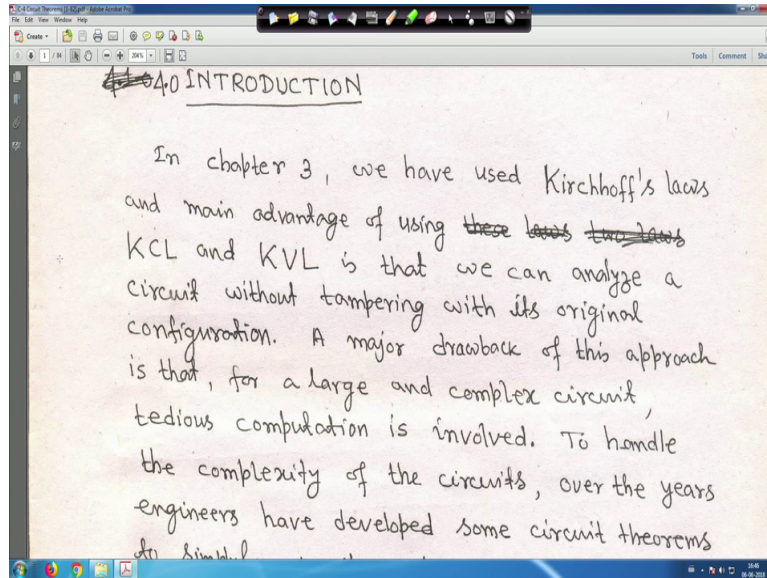 C-4 Circuit Theorems [1-82].pdf - Adobe Acrobat Pro
File Edit View Window Help
Create
1 / 84
204%
Tools Comment
4.0 INTRODUCTION
In chapter 3, we have used Kirchhoff's laws
and main advantage of using these laws two laws
KCL and KVL is that we can analyze a
circuit without tampering with its original
configuration. A major drawback of this approach
is that, for a large and complex circuit,
tedious computation is involved. To handle
the complexity of the circuits, over the years
engineers have developed some circuit theorems
to
16:46
06-06-2018